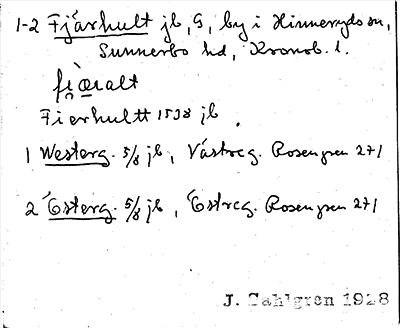 1-2 Fjärhult jb, G, by i Hinneryds sn,
Sunnerbo hd, Kronob. l.
fi̯æralt
Fierhultt 1538 jb.
1 Westerg. 5/8 jb, Västreg. Rosengren 271
2 Österg. 5/8 jb, Östreg. Rosengren 271
J. Sahlgren 1928